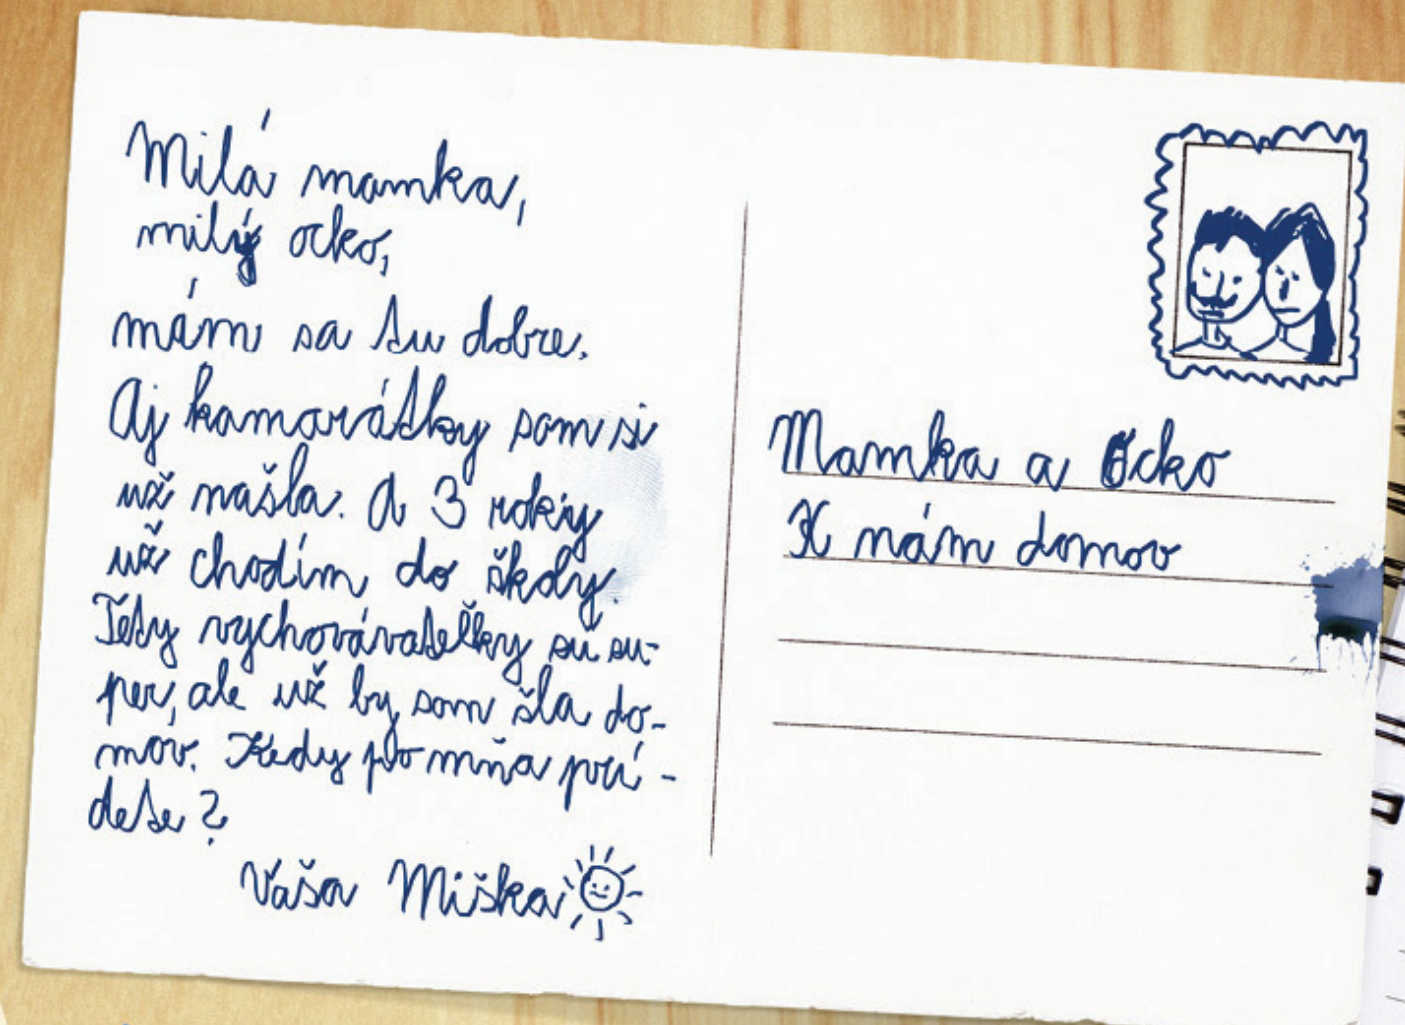 Milá mamka,
milý ocko,
mám sa tu dobre.
Aj kamarátky som si
už našla. A 3 roky
už chodím do školy.
Tety vychovávateľky sú su-
per, ale už by som šla do-
mov. Kedy po mňa prí-
dete?
Vaša Miška
Mamka a Ocko
K nám domov